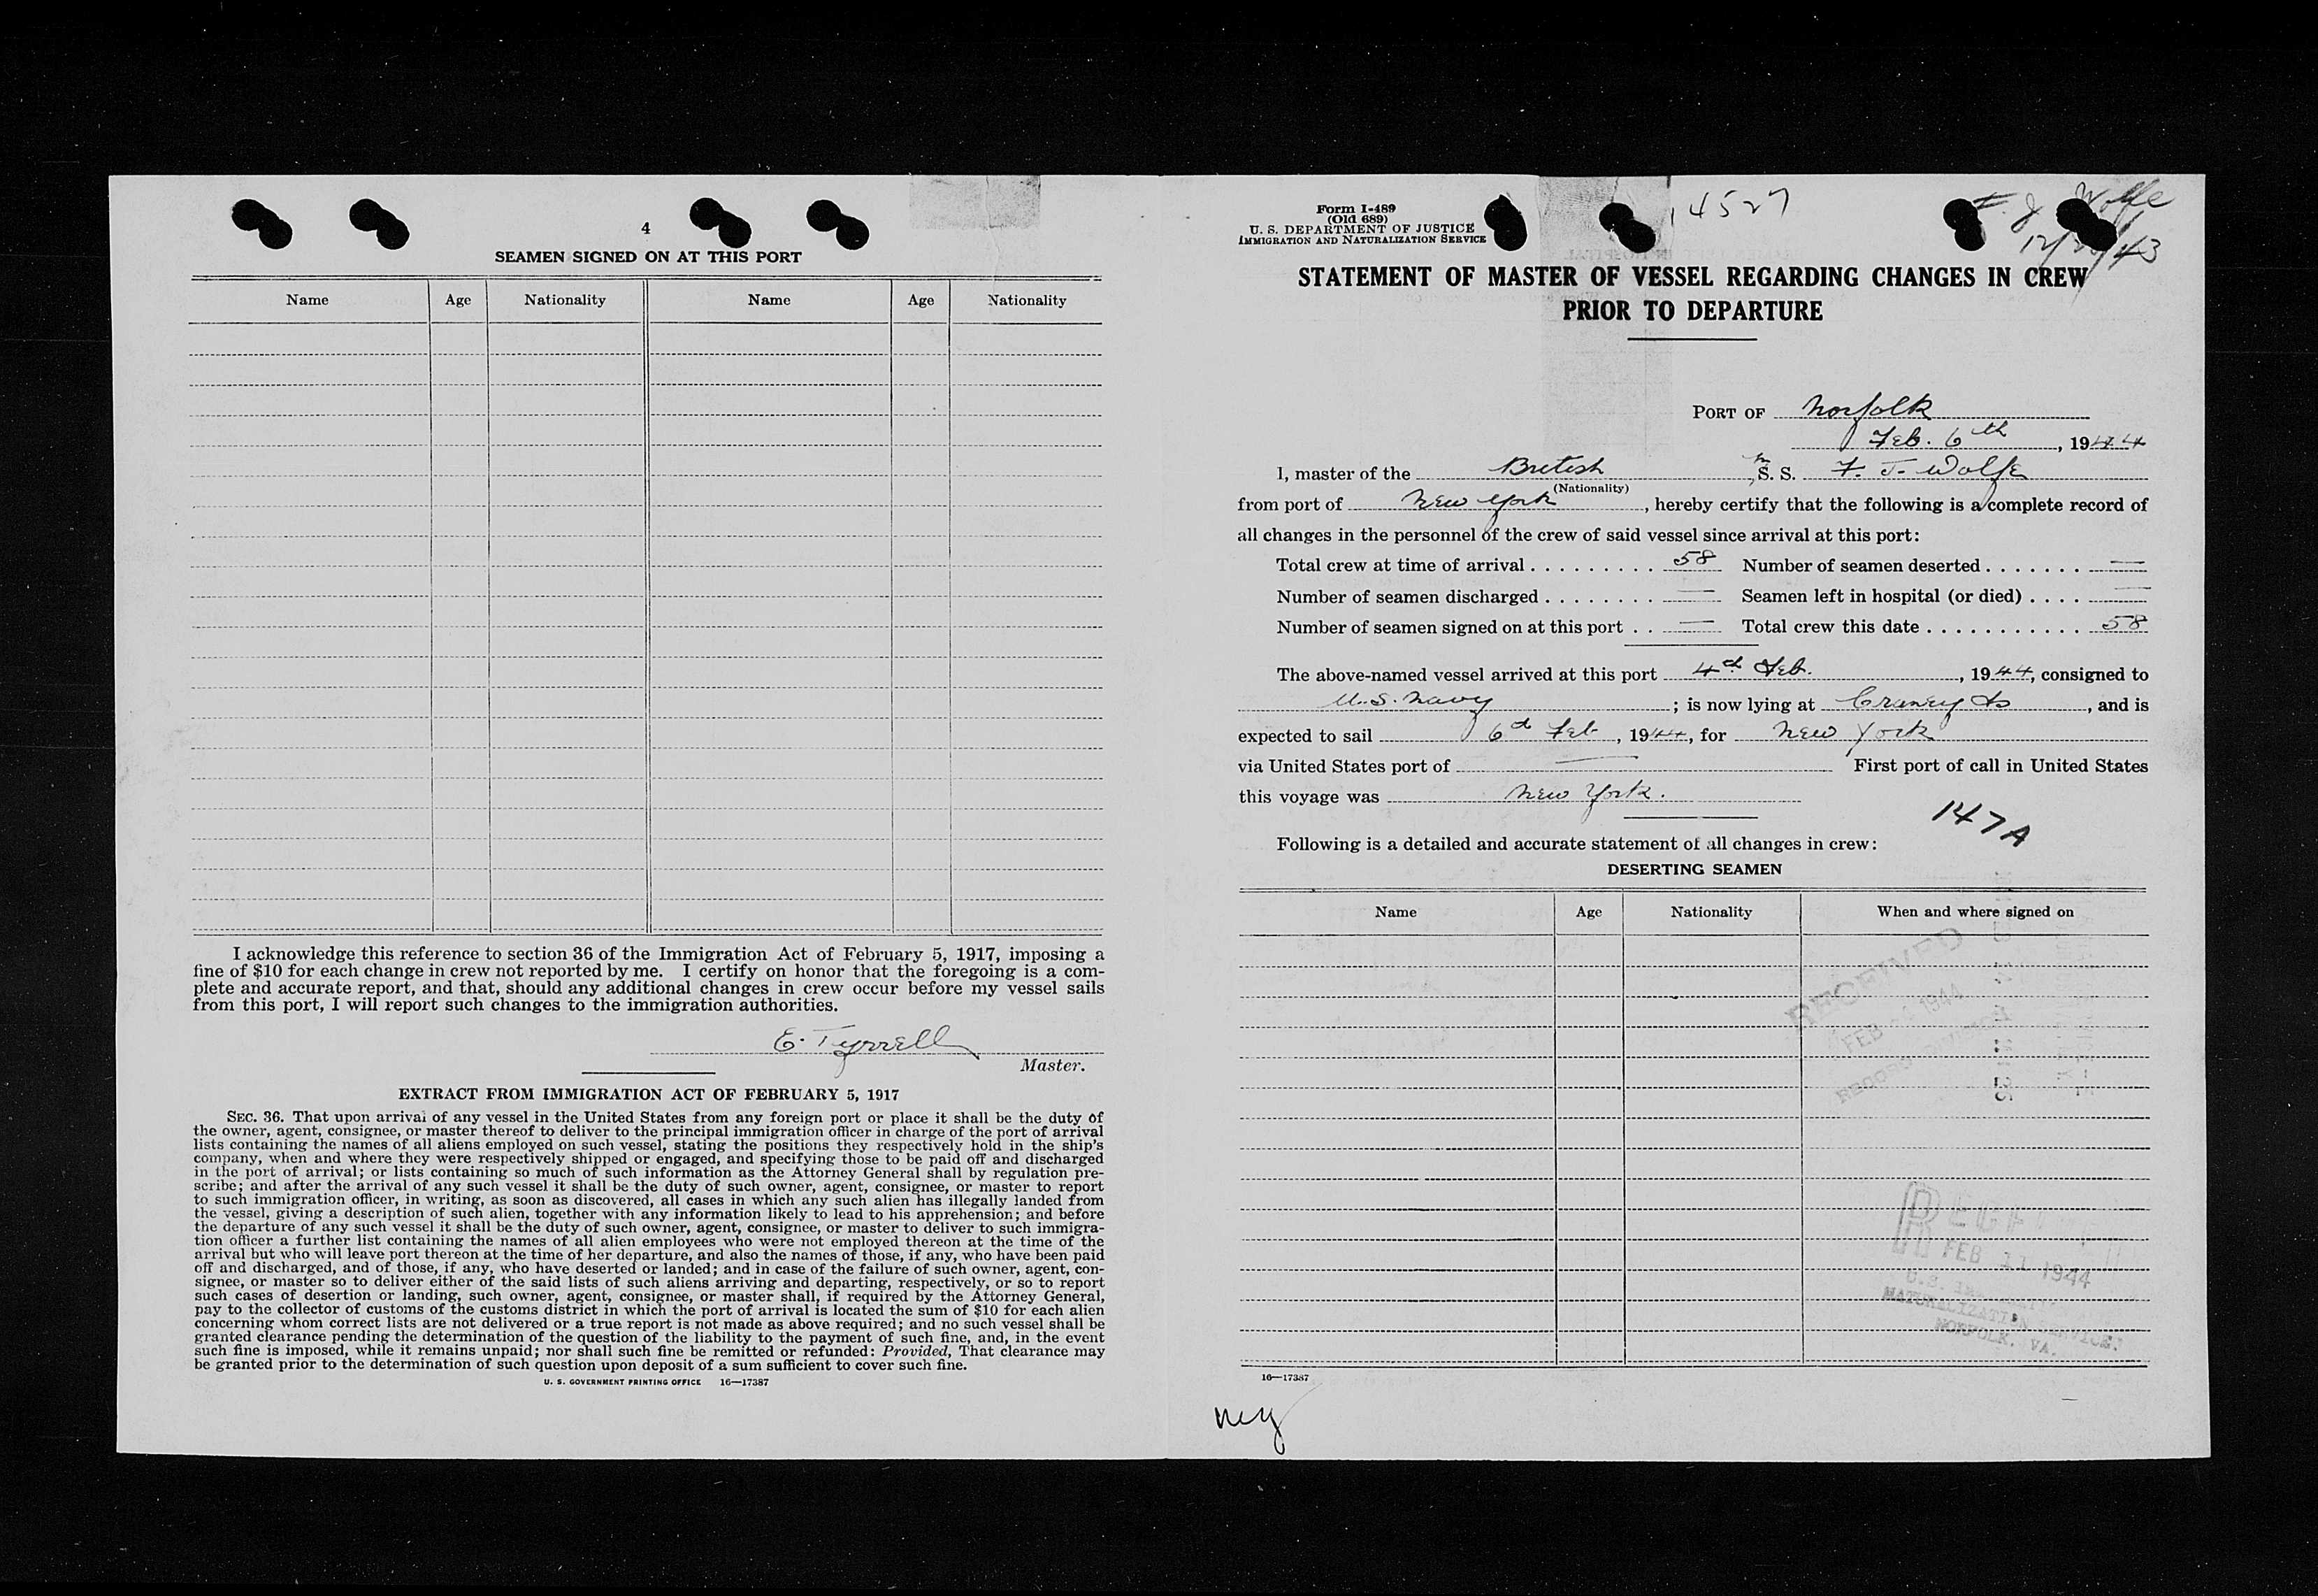 4
SEAMEN SIGNED ON AT THIS PORT
Name Age Nationality Name Age Nationality
I acknowledge this reference to section 36 of the Immigration Act of February 5, 1917, imposing a
fine of $10 for each change in crew not reported by me. I certify on honor that the foregoing is a com-
plete and accurate report, and that, should any additional changes in crew occur before my vessel sails
from this port, I will report such changes to the immigration authorities.
E. Tyrrell
Master.
EXTRACT FROM IMMIGRATION ACT OF FEBRUARY 5, 1917
SEC. 36. That upon arrival of any vessel in the United States from any foreign port or place it shall be the duty of
the owner, agent, consignee, or master thereof to deliver to the principal immigration officer in charge of the port of arrival
lists containing the names of all aliens employed on such vessel, stating the positions they respectively hold in the ship's
company, when and where they were respectively shipped or engaged, and specifying those to be paid off and discharged
in the port of arrival; or lists containing so much of such information as the Attorney General shall by regulation pre-
scribe; and after the arrival of any such vessel it shall be the duty of such owner, agent, consignee, or master to report
to such immigration officer, in writing, as soon as discovered, all cases in which any such alien has illegally landed from
the vessel, giving a description of such alien, together with any information likely to lead to his apprehension; and before
the departure of any such vessel it shall be the duty of such owner, agent, consignee, or master to deliver to such immigra-
tion officer a further list containing the names of all alien employees who were not employed thereon at the time of the
arrival but who will leave port thereon at the time of her departure, and also the names of those, if any, who have been paid
off and discharged, and of those, if any, who have deserted or landed; and in case of the failure of such owner, agent, con-
signee, or master so to deliver either of the said lists of such aliens arriving and departing, respectively, or so to report
such cases of desertion or landing, such owner, agent, consignee, or master shall, if required by the Attorney General,
pay to the collector of customs of the customs district in which the port of arrival is located the sum of $10 for each alien
concerning whom correct lists are not delivered or a true report is not made as above required; and no such vessel shall be
granted clearance pending the determination of the question of the liability to the payment of such fine, and, in the event
such fine is imposed, while it remains unpaid; nor shall such fine be remitted or refunded: Provided, That clearance may
be granted prior to the determination of such question upon deposit of a sum sufficient to cover such fine.
U. S. GOVERNMENT PRINTING OFFICE 16—17387
Form I-489
(Old 689)
U. S. DEPARTMENT OF JUSTICE
IMMIGRATION AND NATURALIZATION SERVICE
14527
F. J. Wolfe
STATEMENT OF MASTER OF VESSEL REGARDING CHANGES IN CREW
PRIOR TO DEPARTURE
PORT OF Norfolk
Feb. 6th, 1944
I, master of the British M S. S. F. J. Wolfe
(Nationality)
from port of New York, hereby certify that the following is a complete record of
all changes in the personnel of the crew of said vessel since arrival at this port:
Total crew at time of arrival . . . . . . . . . 58 Number of seamen deserted . . . . . . . —
Number of seamen discharged . . . . . . . . — Seamen left in hospital (or died) . . . . —
Number of seamen signed on at this port . . — Total crew this date . . . . . . . . . . . . 58
The above-named vessel arrived at this port 4th Feb., 1944, consigned to
U.S. Navy; is now lying at Craney Is, and is
expected to sail 6th Feb, 1944, for New York
via United States port of — First port of call in United States
this voyage was New York.
147A
Following is a detailed and accurate statement of all changes in crew:
DESERTING SEAMEN
Name Age Nationality When and where signed on
RECEIVED
FEB 1944
FEB 11 1944
NATURALIZATION SERVICE
NORFOLK, VA.
16—17387